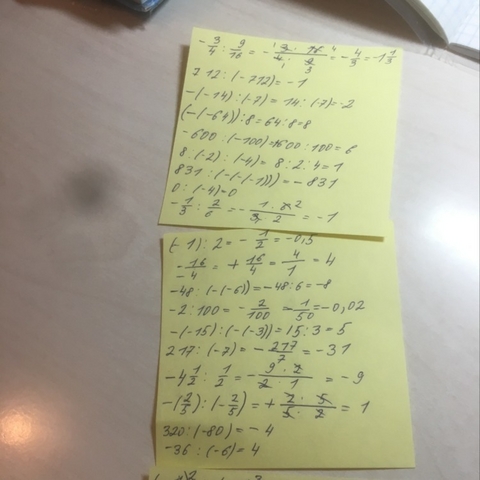 - 3/4 : 9/16 = - 3 · 16 / 4 · 9 = - 4/3 = -1 1/3
712 : (-712) = -1
-(-14) : (-7) = 14 : (-7) = -2
(-(-64)) : 8 = 64 : 8 = 8
-600 : (-100) = 600 : 100 = 6
8 : (-2) : (-4) = 8 : 2 : 4 = 1
831 : (-(-(-1))) = -831
0 : (-4) = 0
- 1/3 : 2/6 = - 1 · 6 / 3 · 2 = -1
(-1) : 2 = - 1/2 = -0,5
- 16/-4 = + 16/4 = 4/1 = 4
-48 : (-(-6)) = -48 : 6 = -8
-2 : 100 = - 2/100 = - 1/50 = -0,02
-(-15) : (-(-3)) = 15 : 3 = 5
217 : (-7) = - 217/7 = -31
-4 1/2 : 1/2 = - 9 · 2 / 2 · 1 = -9
-(2/5) : (- 2/5) = + 2 · 5 / 5 · 2 = 1
320 : (-80) = -4
-36 : (-6) = 4